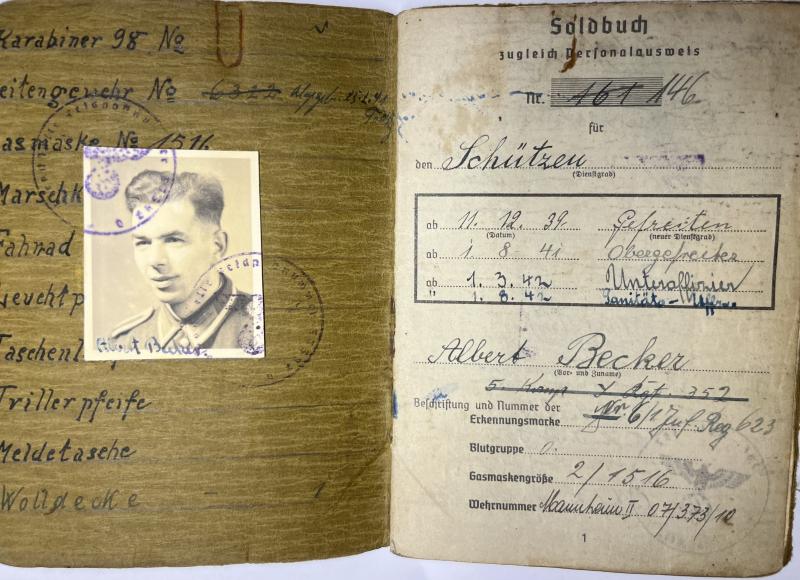 Karabiner 98 No
eitengewehr No 6322
asmaske No 1516
Marschk
Fahrad
Leucht p
Taschenl
Trillerpfeife
Meldetasche
Wolldecke
Albert Becker
Soldbuch
zugleich Personalausweis
Nr. 161 146
für
den Schützen
(Dienstgrad)
ab 11. 12. 39. Gefreiten
(Datum) (neuer Dienstgrad)
ab 1 8 41 Obergefreiter
ab 1. 3. 42 Unteroffizier
" 1. 8. 42 Sanitäts-Uffz.
Albert Becker
(Vor- und Zuname)
5. Komp. Rgt. 352
Beschriftung und Nummer der
Erkennungsmarke Nr. 6/Inf. Reg 623
Blutgruppe O.
Gasmaskengröße 2/1516
Wehrnummer Mannheim II 07/373/10
1